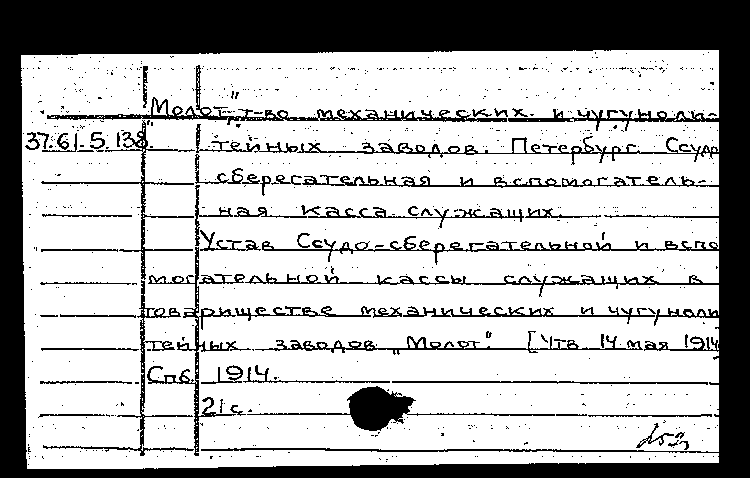 "Молот", т-во механических и чугуноли-
37.61.5.138. тейных заводов. Петербург. Ссудо
сберегательная и вспомогатель-
ная касса служащих.
Устав Ссудо-сберегательной и вспо
могательной кассы служащих в
товариществе механических и чугуноли
тейных заводов „Молот". [Утв. 14 мая 1914
Спб. 1914.
21 с.